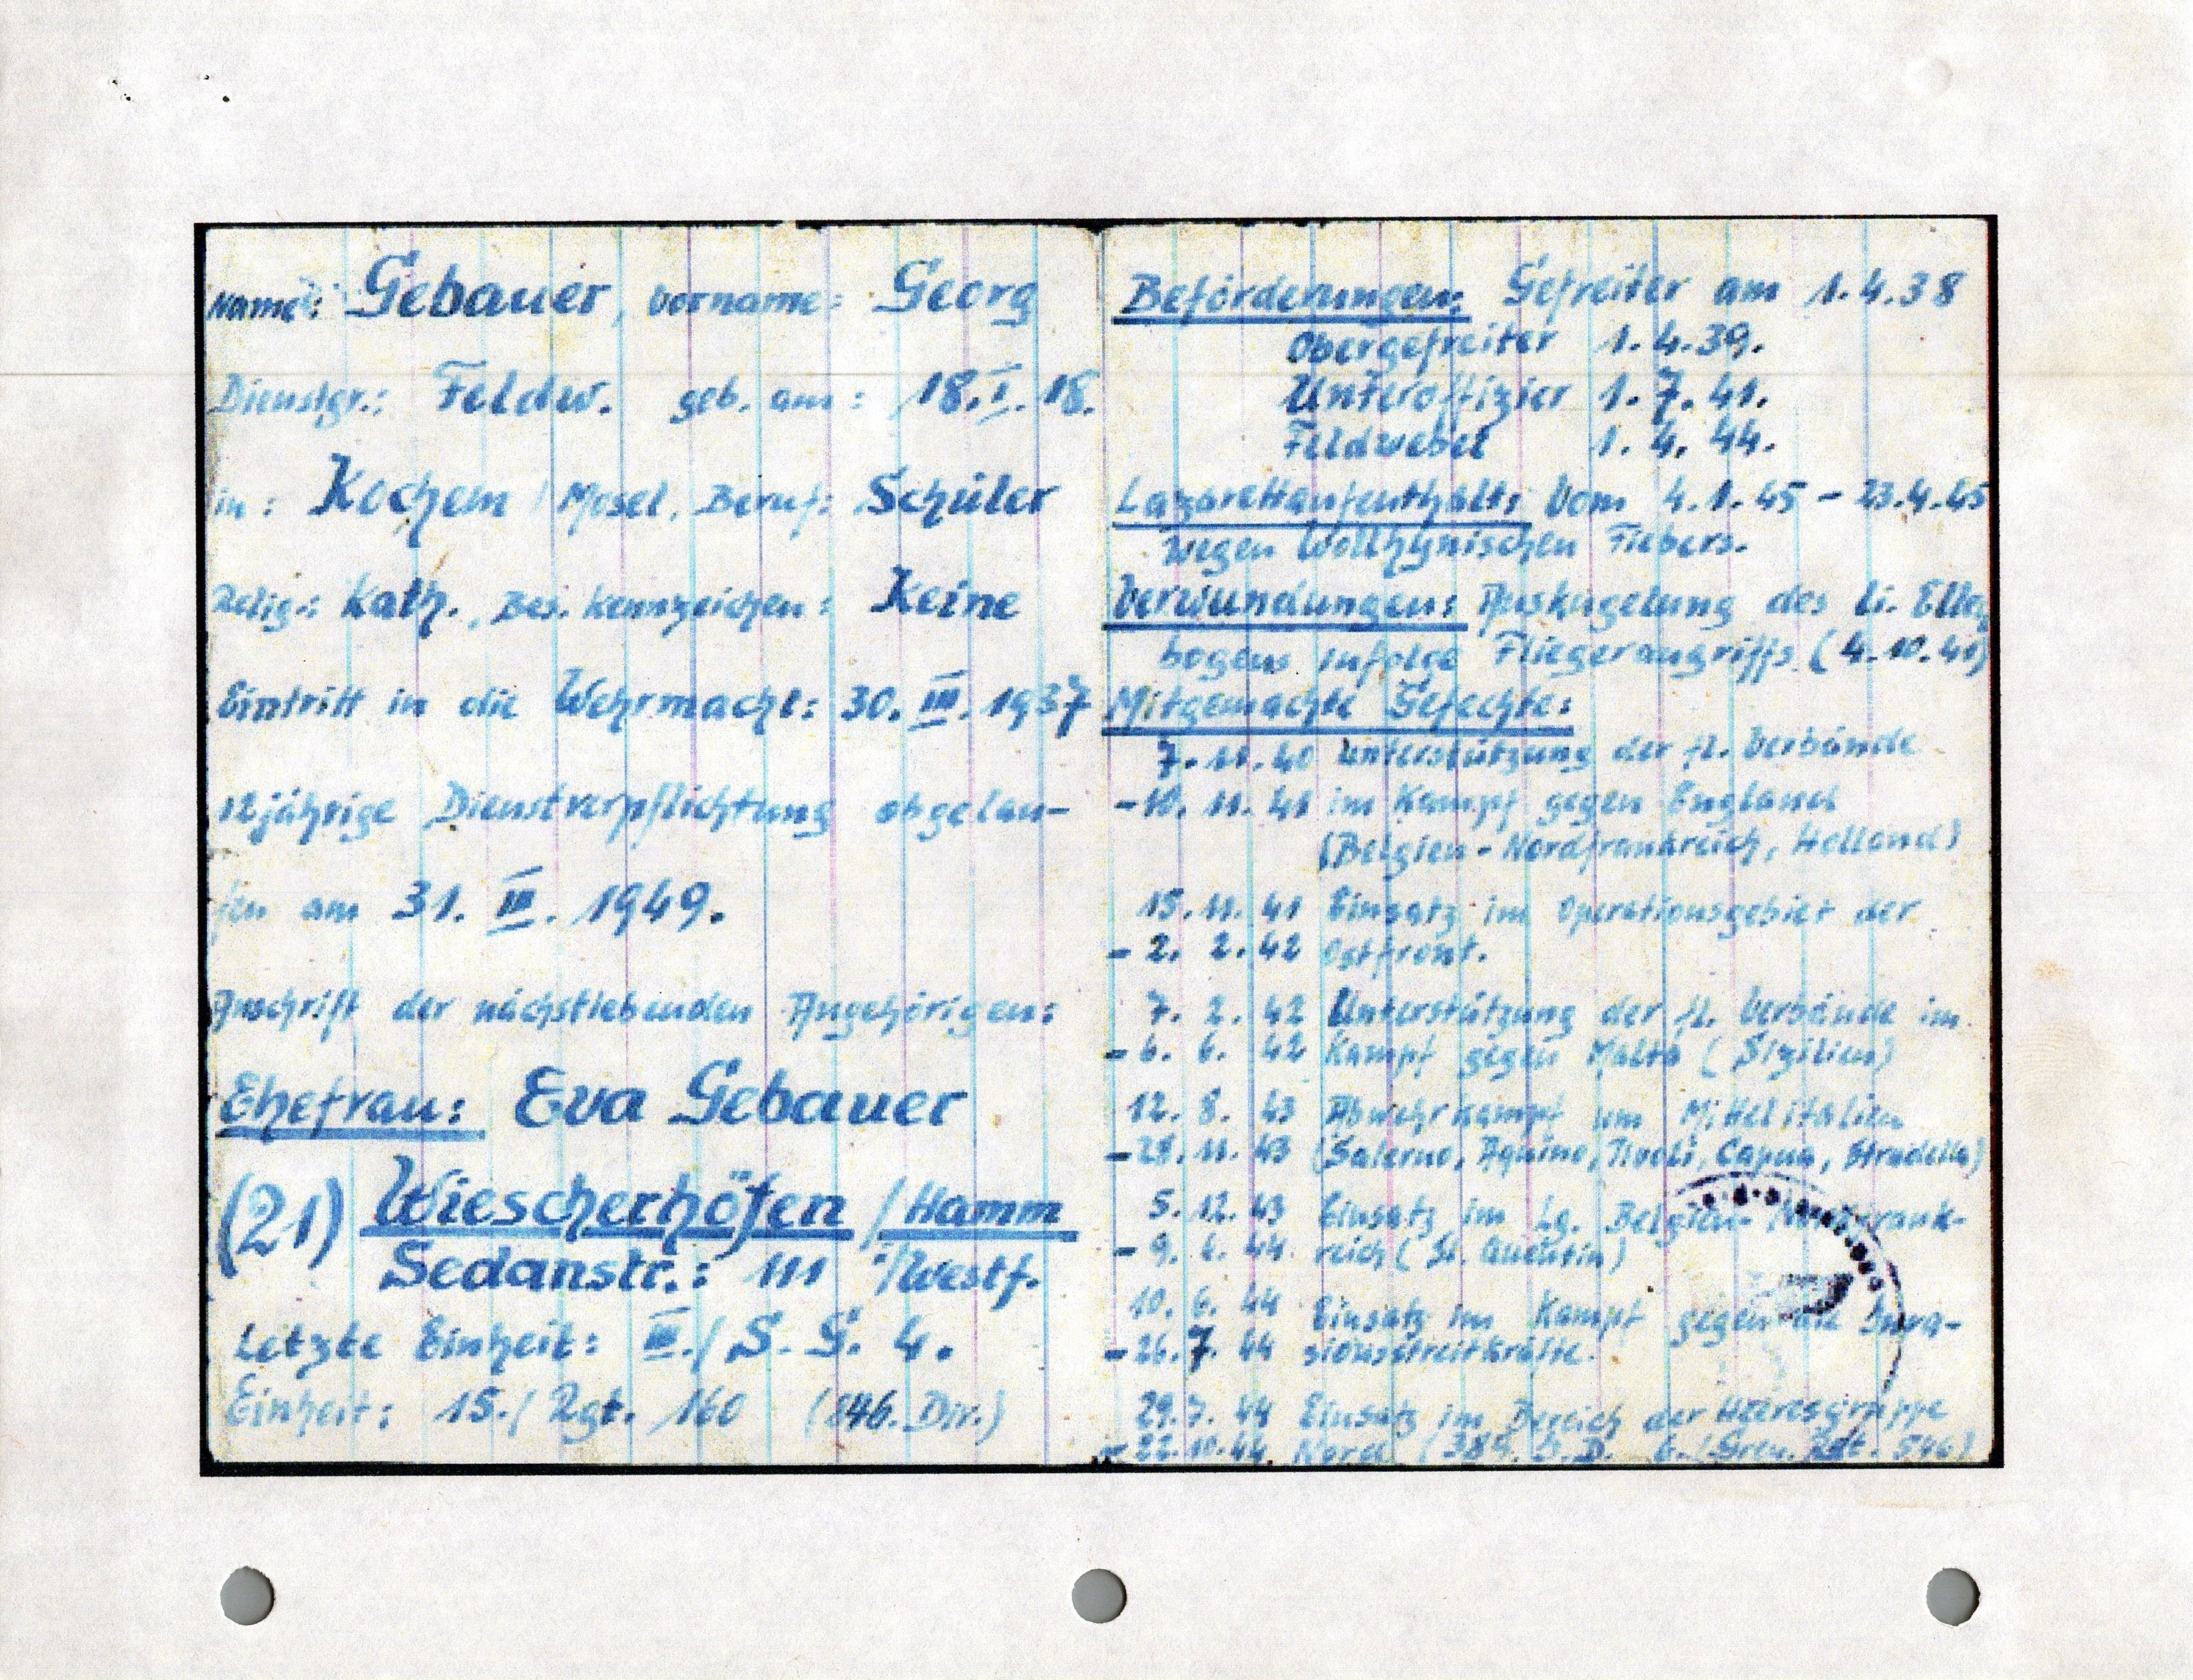 Name: Gebauer, Vorname: Georg
Dienstgr.: Feldw. geb. am: 18. I. 18.
in: Kochem / Mosel, Beruf: Schüler
Relig.: Kath., Bes. Kennzeichen: Keine
Eintritt in die Wehrmacht: 30. III. 1937
12jährige Dienstverpflichtung abgelau-
fen am 31. III. 1949.
Anschrift der nächstlebenden Angehörigen:
Ehefrau: Eva Gebauer
(21) Wiescherhöfen / Hamm
Sedanstr.: 111 i/Westf.
Letzte Einheit: III./ S. G. 4.
Einheit: 15./ Rgt. 160 (846. Div.)
Beförderungen: Gefreiter am 1.4.38
Obergefreiter 1.4.39.
Unteroffizier 1.7.41.
Feldwebel 1.4.44.
Lazarettaufenthalt: Vom 4.1.45 - 23.4.45
wegen Wollhynischen Fiebers.
Verwundungen: Auskugelung des li. Ellen
bogens infolge Fliegerangriffs (4.10.41)
Mitgemachte Gefechte:
7. 11. 40 Unterstützung der fl. Verbände
- 10. 11. 41 im Kampf gegen England
(Belgien - Nordfrankreich, Holland)
15. 11. 41 Einsatz im Operationsgebiet der
- 2. 2. 42 Ostfront.
7. 2. 42 Unterstützung der fl. Verbände im
- 6. 6. 42 Kampf gegen Malta (Sizilien)
12. 8. 43 Abwehrkampf um Mittelitalien
- 28. 11. 43 (Salerno, Aquino, Tivoli, Capua, Stradella)
5. 12. 43 Einsatz im Lg. Belgien - Nordfrank-
- 9. 6. 44 reich (St. Quentin)
10. 6. 44 Einsatz im Kampf gegen die Inva-
- 26. 7. 44 sionsstreitkräfte.
29. 7. 44 Einsatz im Bereich der Heeresgruppe
- 22. 10. 44. Nord (389. I. D. 6./Gren. Rgt. 546)